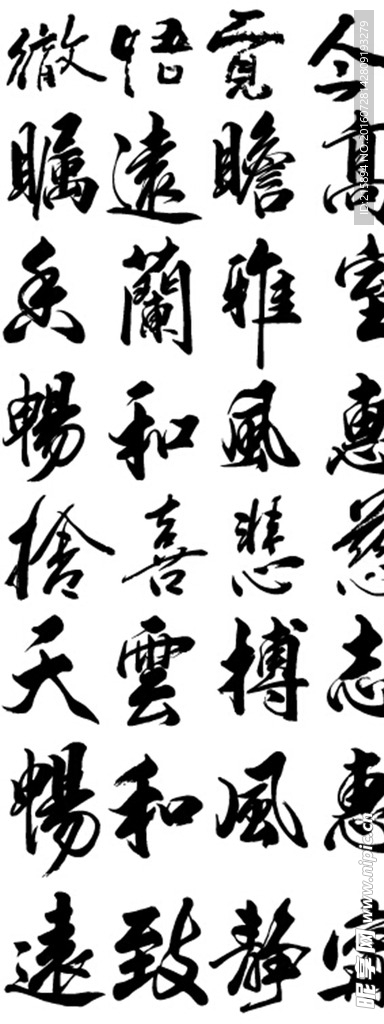 覓悟徹
高瞻遠矚
室雅蘭香
惠風和暢
慈悲喜捨
志搏雲天
惠風和暢
寧靜致遠
ID:215894 NO:20160728142809193279
昵享网 www.nipic.cn